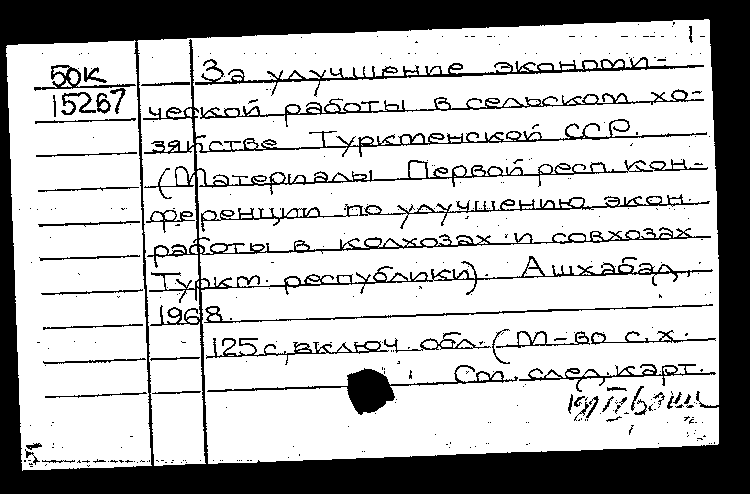 1
50К
15267
За улучшение экономи-
ческой работы в сельском хо-
зяйстве Туркменской ССР.
(Материалы Первой респ. кон-
ференции по улучшению экон.
работы в колхозах и совхозах
Туркм. республики). Ашхабад,
1968.
125 с, включ. обл. (М-во с. х.
См. след. карт.